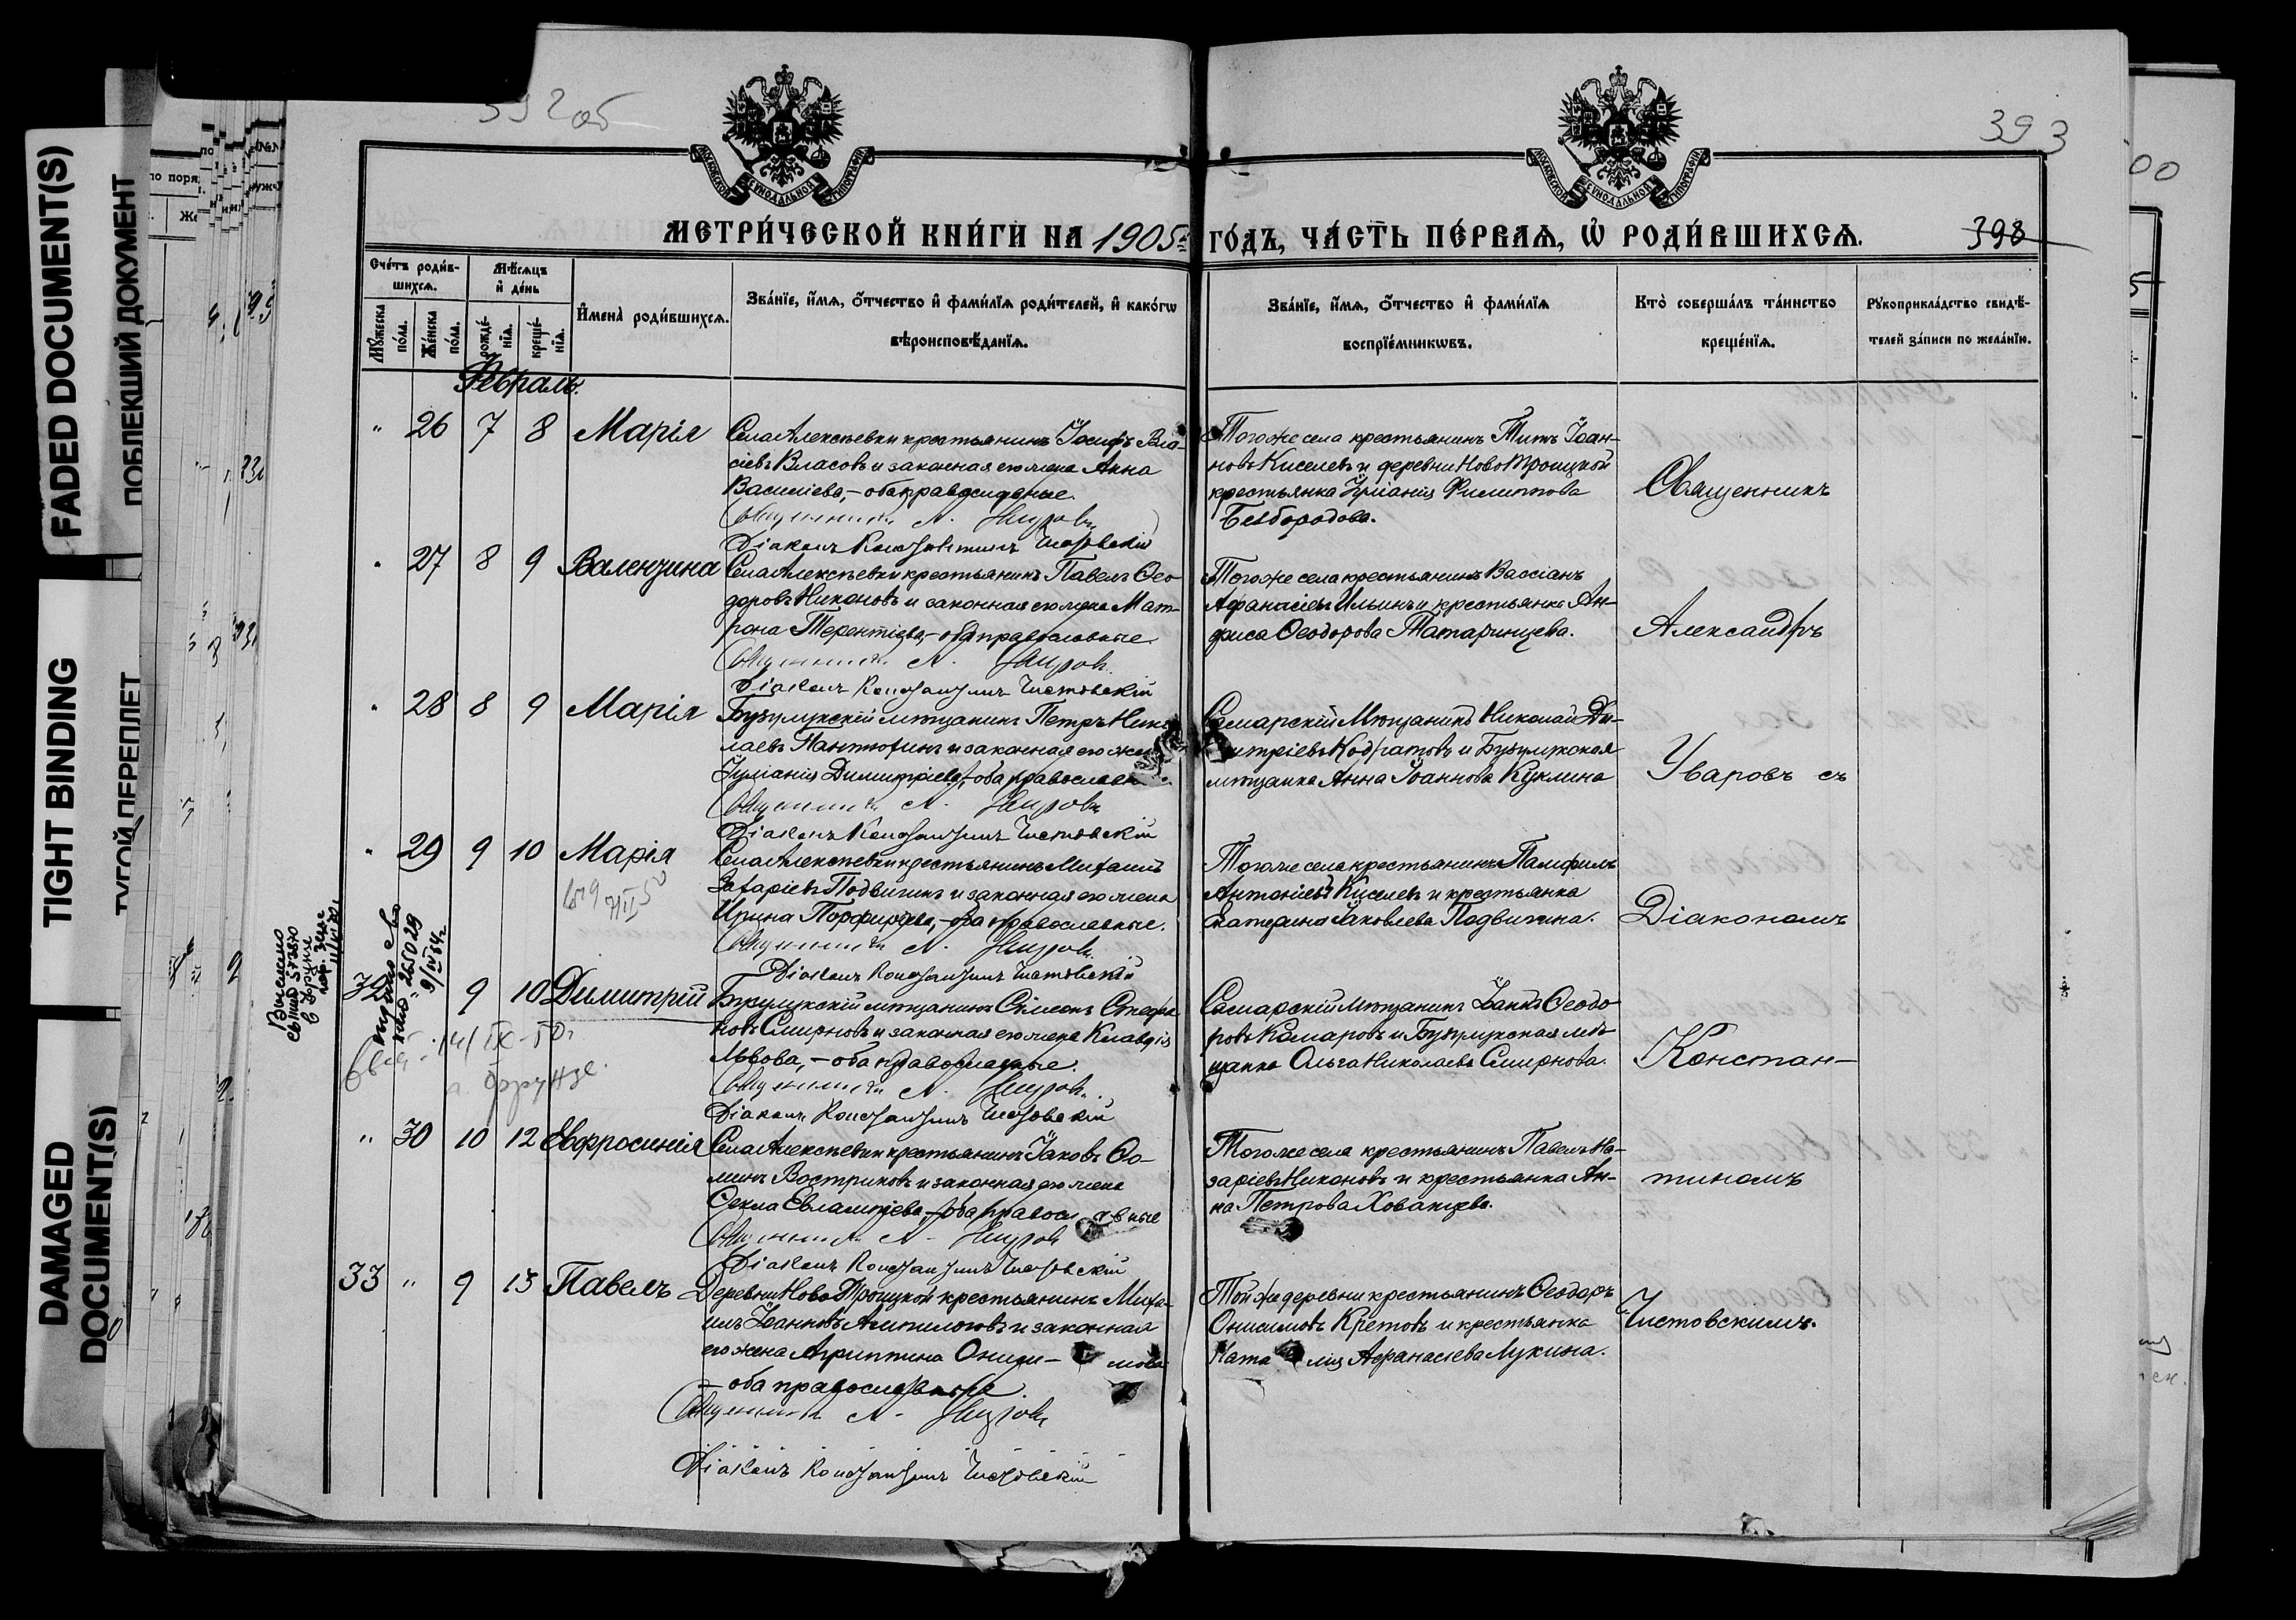 FADED DOCUMENT(S)
ПОБЛЕКШИЙ ДОКУМЕНТ
TIGHT BINDING
ТУГОЙ ПЕРЕПЛЕТ
DAMAGED DOCUMENT(S)
392 об
393
МОСКОВСКОЙ СѴНОДАЛЬНОЙ ТИПОГРАФІИ
МОСКОВСКОЙ СѴНОДАЛЬНОЙ ТИПОГРАФІИ
МЕТРИ́ЧЕСКОЙ КНИ́ГИ НА 1905й ГО́ДЪ, ЧА́СТЬ ПЕ́РВАЯ, Ѡ РОДИ́ВШИХСЯ.
398
Сче́тъ роди́в-
шихся.
Мѣ́сяцъ
и҆ де́нь
Мꙋ́жеска по́ла.
Же́нска по́ла.
рожде́-
нїѧ.
креще́-
нїѧ.
И҆мена̀ роди́вшихся.
Зва́нїе, и҆́мѧ, ѻ҆́тчество и҆ фами́лїѧ роди́телей, и҆ како́гѡ
вѣроисповѣ́данїѧ.
Зва́нїе, и҆́мѧ, ѻ҆́тчество и҆ фами́лїѧ
воспрїе́мникѡвъ.
Кто̀ соверша́лъ та́инство
креще́нїѧ.
Рꙋкоприкла́дство свидѣ́-
телей за́писи по жела́нїю.
Февраль.
" 26 7 8 Марія
Села Алексѣевки крестьянинъ Іосифъ Вла-
сіевъ Власовъ и законная его жена Анна
Василіева, – оба православные.
Священникъ А. Уваровъ
Діаконъ Константинъ Чистовскій
Тогоже села крестьянинъ Титъ Іоан-
новъ Киселевъ и деревни НовоТроицкой
крестьянка Іуліанія Филиппова
Безбородова.
Священникъ
" 27 8 9 Валентина
Села Алексѣевки крестьянинъ Павелъ Ѳео-
доровъ Никоновъ и законная его жена Мат-
рона Терентіева, – оба православные.
Священникъ А. Уваровъ
Діаконъ Константинъ Чистовскій
Тогоже села крестьянинъ Вассіанъ
Афанасіевъ Ильинъ и крестьянка Ан-
фиса Ѳеодорова Татаринцева.
Александръ
" 28 8 9 Марія
Бузулукскій мѣщанинъ Петръ Нико-
лаевъ Пантюхинъ и законная его жена
Іуліанія Димитріева, – оба православн
Священникъ А. Уваровъ
Діаконъ Константинъ Чистовскій
Самарскій Мѣщанинъ Николай Ди-
митріевъ Кодратовъ и Бузулукская
мѣщанка Анна Іоаннова Куклина
Уваровъ съ
" 29 9 10 Марія
Села Алексѣевки крестьянинъ Михаилъ
Захаріевъ Подвигинъ и законная его жена
Ирина Порфирьева, – оба православные.
Священникъ А. Уваровъ
Діаконъ Константинъ Чистовскій
Тогоже села крестьянинъ Памфилъ
Антоніевъ Киселевъ и крестьянка
Екатерина Іаковлева Подвигина.
Діакономъ
32 9 10 Димитрій
Бузулукскій мѣщанинъ Сѵмеонъ Стефа-
новъ Смирновъ и законная его жена Клавдія
Львова, – оба православные.
Священникъ А. Уваровъ
Діаконъ Константинъ Чистовскій
Самарскій Мѣщанинъ Іоаннъ Ѳеодо
ровъ Комаровъ и Бузулукская мѣ-
щанка Ольга Николаева Смирнова.
Констан-
14/IX-50г
г. Фрунзе.
" 30 10 12 Евфросинія
Села Алексѣевки крестьянинъ Іаковъ Ѳо-
минъ Востриковъ и законная его жена
Ѳекла Евлампіева, – оба правосл авные
Священникъ А. Уваровъ
Діаконъ Константинъ Чистовскій
Тогоже села крестьянинъ Павелъ На-
заріевъ Никоновъ и крестьянка Ан-
на Петрова Хованцева.
тиномъ
33 " 9 13 Павелъ
Деревни НовоТроицкой крестьянинъ Миха-
илъ Іоанновъ Ампилоговъ и законная
его жена Агриппина Ониси- мова
– оба православные.
Священникъ А. Уваровъ
Діаконъ Константинъ Чистовскій
Той же деревни крестьянинъ Ѳеодоръ
Онисимовъ Кретовъ и крестьянка
Ната лія Афанасіева Лукина.
Чистовскимъ.